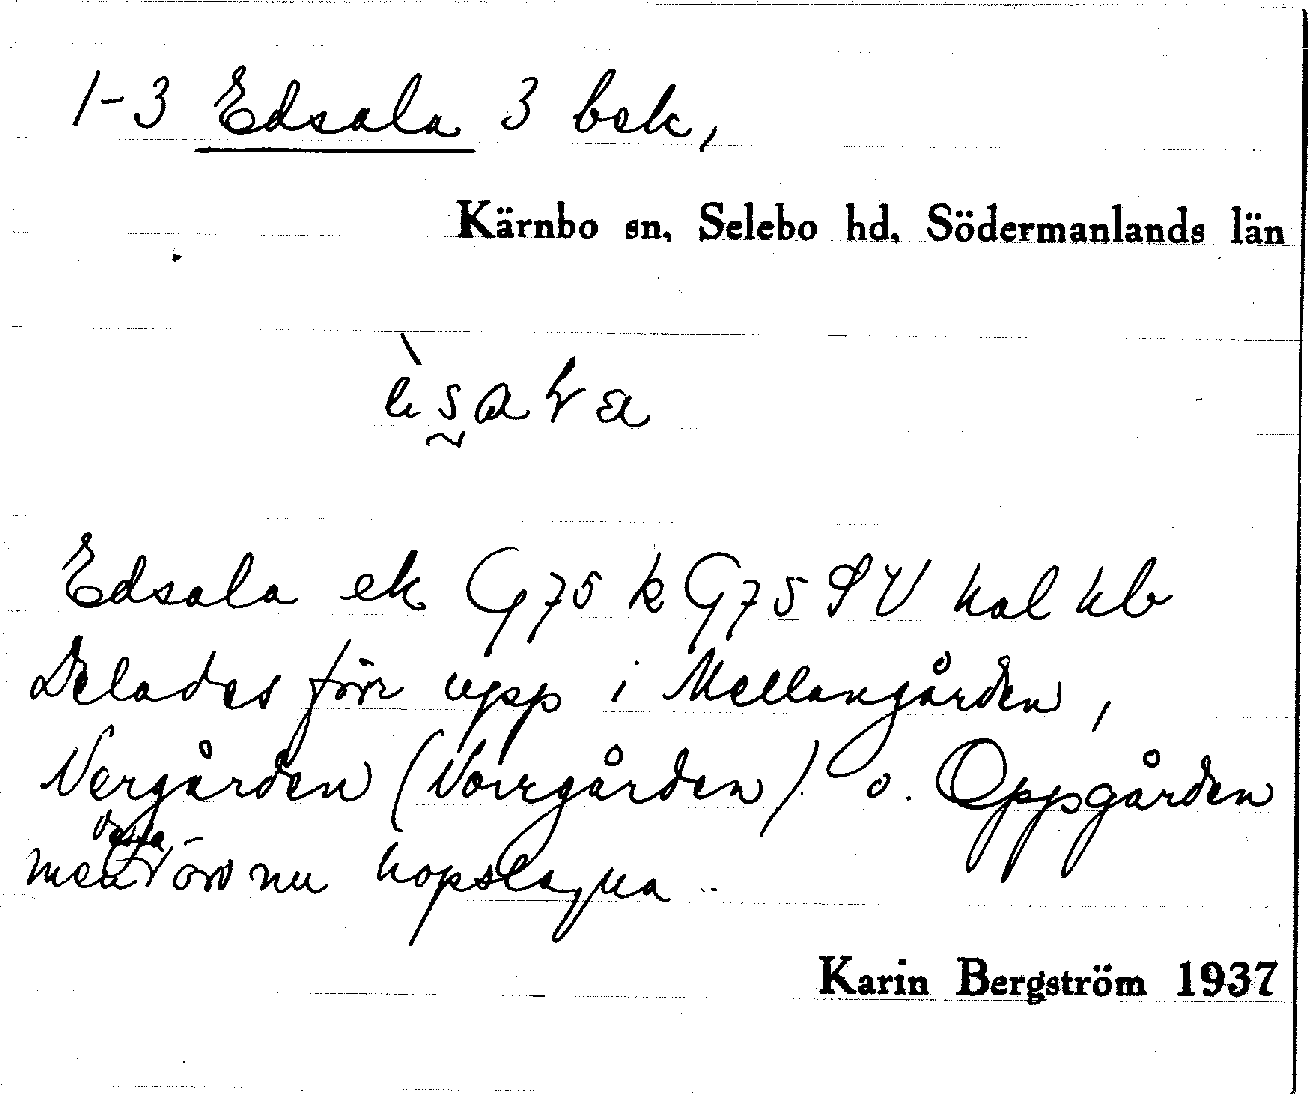 1-3 Edsala 3 bek,
Kärnbo sn, Selebo hd, Södermanlands län
Edsala ek G75 k G75 SV hal hb
Delades förr upp i Mellangården,
Norgården (Norrgården) o. Oppgården
men dessa äro nu hopslagna
Karin Bergström 1937